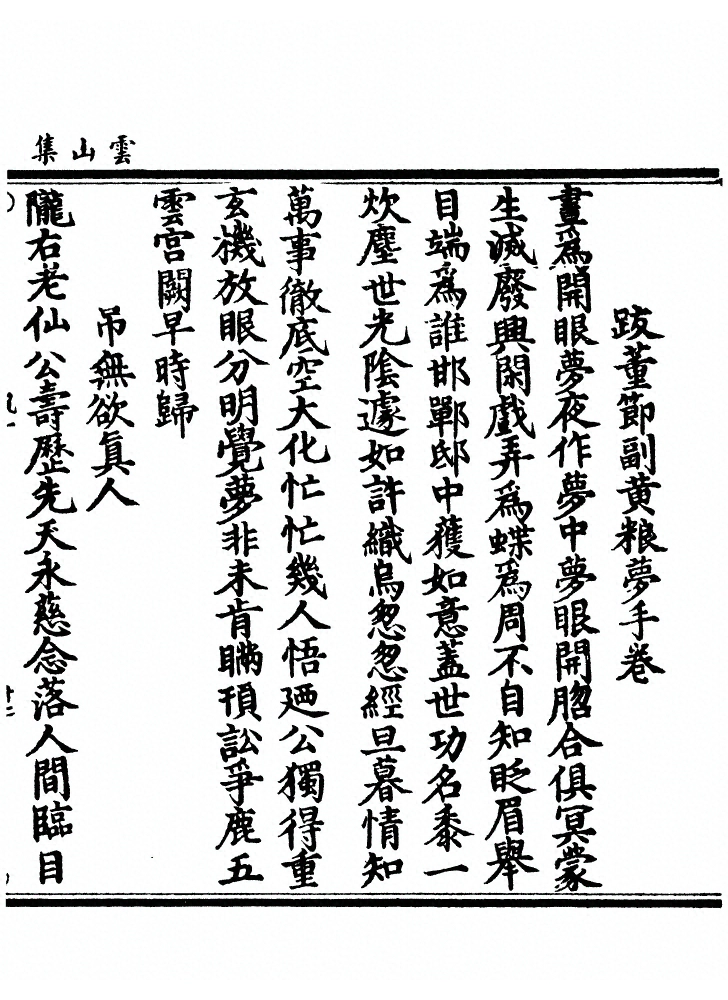 雲山集
跋董節副黄粮夢手卷
晝爲開眼夢夜作夢中夢眼開䏩合俱冥蒙
生滅廢興閑戲弄爲蝶爲周不自知眨眉舉
目端爲誰邯鄲邸中蒦如意蓋世功名黍一
炊塵世光陰遽如許織烏怱怱經旦暮情知
萬事徹底空大化忙忙幾人悟廼公獨得重
玄機放眼分明覺夢非未肯瞞頇訟爭鹿五
雲宫闕早時歸
吊無欲眞人
隴右老仙公壽歷先天永慈念落人間臨目